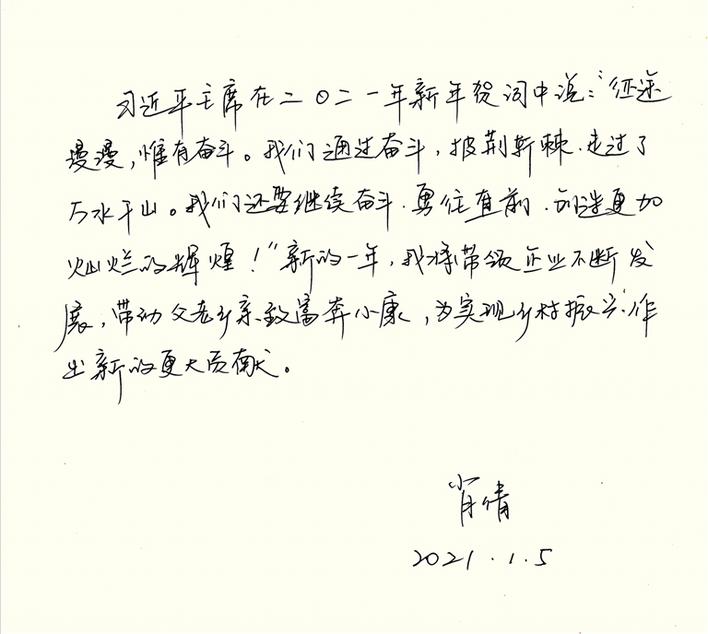 习近平主席在二〇二一年新年贺词中说："征途
漫漫，惟有奋斗。我们通过奋斗，披荆斩棘，走过了
万水千山。我们还要继续奋斗，勇往直前，创造更加
灿烂的辉煌！"新的一年，我将带领企业不断发
展，带动父老乡亲致富奔小康，为实现乡村振兴作
出新的更大贡献。
肖倩
2021.1.5